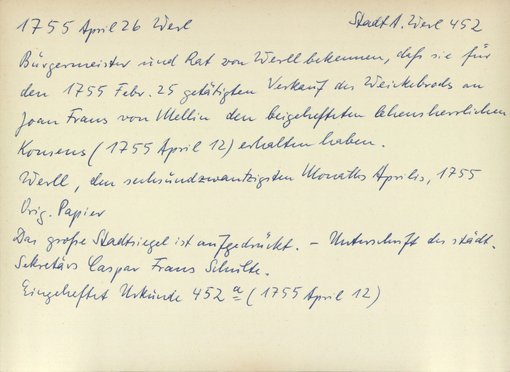 1755 April 26 Werl
Stadt A. Werl 452
Bürgermeister und Rat von Werll bekennen, daß sie für
den 1755 Febr. 25 getätigten Verkauf des Weickebrods an
Joan Frans von Mellin den beigehefteten lehensherrlichen
Konsens (1755 April 12) erhalten haben.
Werll, den sechsundzwantzigsten Monaths Aprilis, 1755
Orig. Papier
Das große Stadtsiegel ist aufgedrückt. – Unterschrift des städt.
Sekretärs Caspar Frans Schulte.
Eingeheftet Urkunde 452 a (1755 April 12)